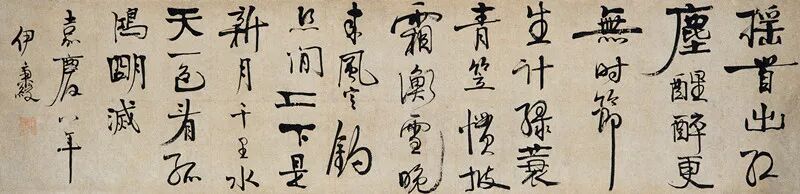 搖首出紅
塵醒醉更
無时節
生計緑蓑
青笠慣披
霜衝雪晚
来風定釣
丝閒上下是
新月千里水
天一色看孤
鴻朙滅
嘉慶八年
伊秉綬